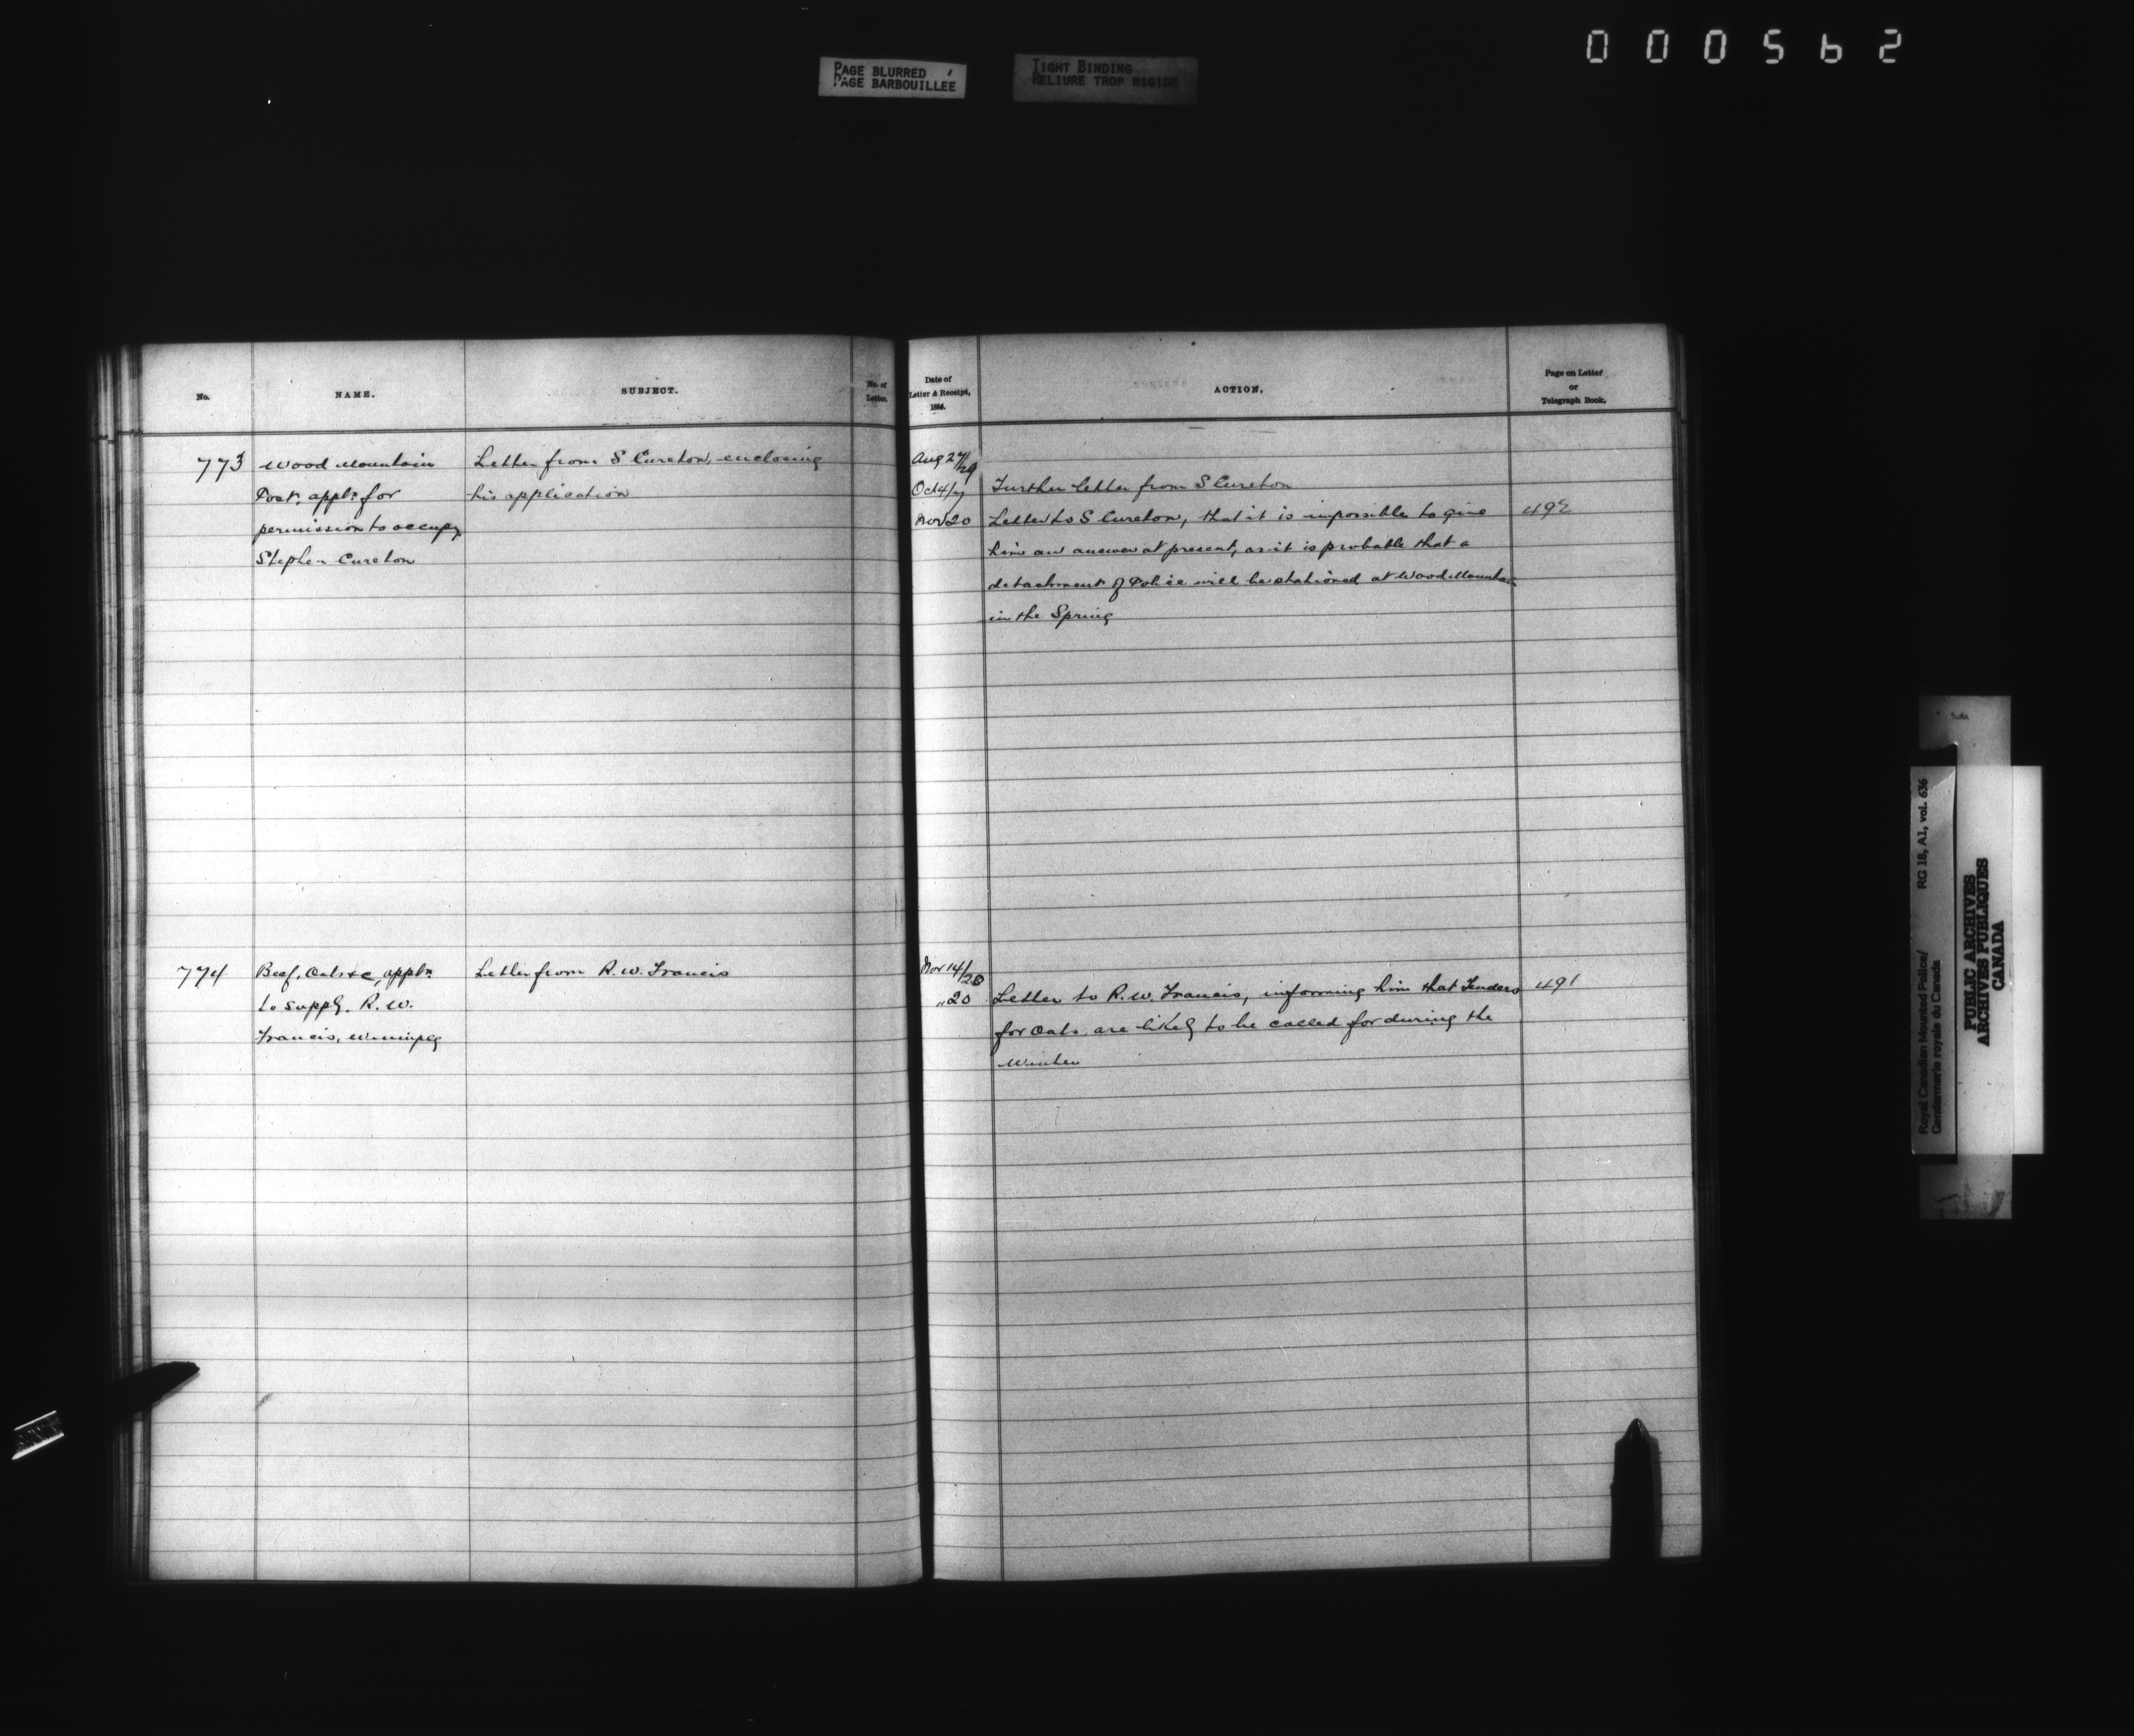 000562
PAGE BLURRED
PAGE BARBOUILLÉE
TIGHT BINDING
RELIURE TROP RIGIDE
No.
NAME.
SUBJECT.
No. of
Letter.
773
Wood Mountain
Post. appl: for
permission to occupy
Stephen Cureton
Letter from S Cureton, enclosing
his application
774
Beef, Oats &c, appln
to supply. R. W.
Francis, Winnipeg
Letter from R. W. Francis
Date of
Letter & Receipt,
1884.
ACTION.
Page on Letter
or
Telegraph Book.
Aug 27/29
Oct 4/7
Further letter from S Cureton
Nov 20
Letter to S Cureton, that it is impossible to give
492
him an answer at present, as it is probable that a
detachment of Police will be stationed at Wood Mountain
in the Spring
Nov 14/20
" 20
Letter to R. W. Francis, informing him that Tenders
491
for Oats, are likely to be called for during the
Winter
Royal Canadian Mounted Police/
Gendarmerie royale du Canada
RG 18, A1, vol. 636
PUBLIC ARCHIVES
ARCHIVES PUBLIQUES
CANADA